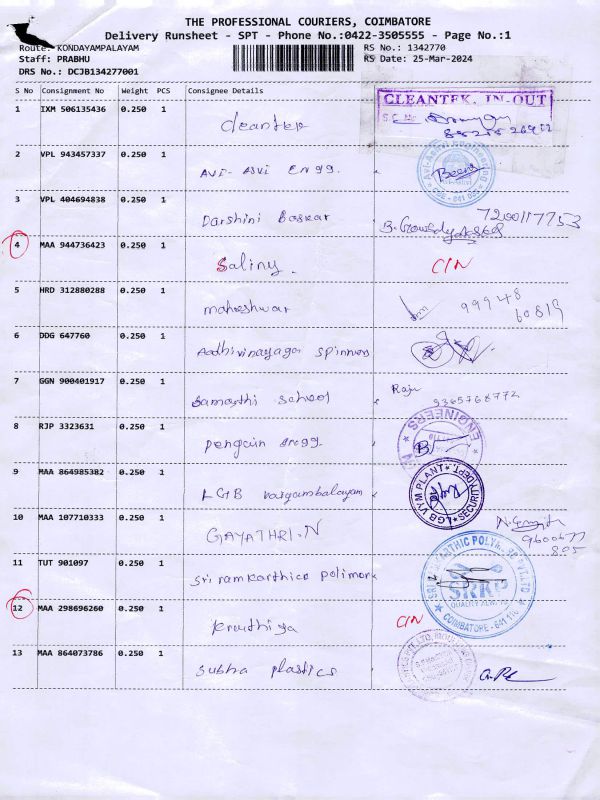 THE PROFESSIONAL COURIERS, COIMBATORE
Delivery Runsheet - SPT - Phone No.:0422-3505555 - Page No.:1
Route: KONDAYAMPALAYAM RS No.: 1342770
Staff: PRABHU RS Date: 25-Mar-2024
DRS No.: DCJB134277001
S No Consignment No Weight PCS Consignee Details
CLEANTEK, IN-OUT
1 IXM 506135436 0.250 1 Cleantek
2 VPL 943457337 0.250 1 AVI- ASVI Engg.
3 VPL 404694838 0.250 1 Darshini Baskar 7200117753
4 MAA 944736423 0.250 1 Saliny. CIN
5 HRD 312880288 0.250 1 maheshwar 99948
60819
6 DDG 647760 0.250 1 Aadhivinayaga spinners
7 GGN 900401917 0.250 1 Samarthi school Raju
9365768772
8 RJP 3323631 0.250 1 penguin engg. ENGINEERS
9 MAA 864985382 0.250 1 LGB vaiyambalayam LGB VYM PLANT SECURITY DEPT.
10 MAA 107710333 0.250 1 GAYATHRI.N
9600677
805
11 TUT 901097 0.250 1 Sri ramkarthica polimork
SRKP
QUALITY ALWAYS
COIMBATORE - 641 110
12 MAA 298696260 0.250 1 Kruthiga CIN
13 MAA 864073786 0.250 1 Subha plastics